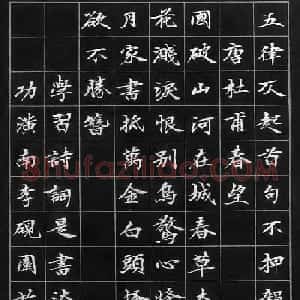 五律仄起首句不
唐杜甫春望
國破山河在城春草
花濺淚恨別鳥驚心
月家書抵萬金白頭
欲不勝簪
學習詩詞是書
功
李硯園
shufaziliao.com